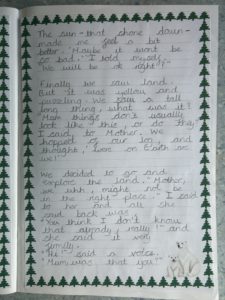 The sun - that shone down -
made me feel a bit
better. "Maybe it wont be
so bad." I told myself.
"We will be al right!"
Finally we saw land.
But it was yellow and
puzzling. We saw a tall
long thing, what was it?
"Mam things don't usually
look like this, or do they
I said to Mother. We
hopped of our log and
thought, were on Earth are
we!
We decided to go and
explore the land. "Mother,
we uhh, might not be
in the right place." I said
to her and all she
said back was
"You think I don't know
that already, really!" and
she said it very
said a voice.
"Mum was that you?"